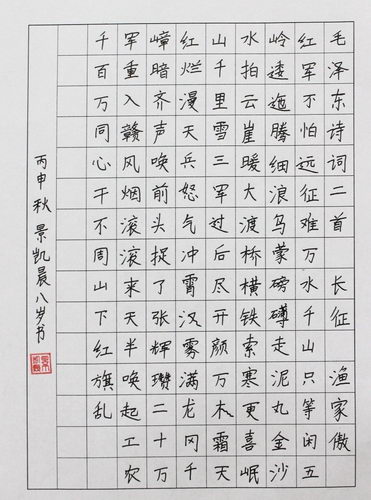 毛泽东诗词二首 长征 渔家傲
红军不怕远征难万水千山只等闲五
岭逶迤腾细浪乌蒙磅礴走泥丸金沙
水拍云崖暖大渡桥横铁索寒更喜岷
山千里雪三军过后尽开颜万木霜天
红烂漫天兵怒气冲霄汉雾满龙冈千
嶂暗齐声唤前头捉了张辉瓒二十万
军重入赣风烟滚滚来天半唤起工农
千百万同心干不周山下红旗乱
丙申秋景凯晨八岁书